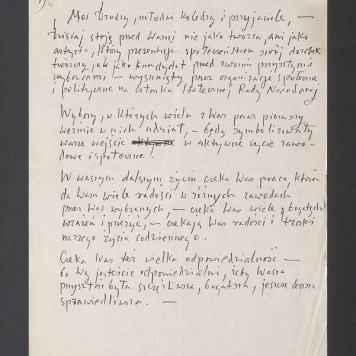 Moi Drodzy, młodzi koledzy i przyjaciele, —
Dzisiaj stoję przed Wami nie jako twórca, ani jako
artysta, który prezentuje społeczeństwu swój dorobek
twórczy lecz jako kandydat przed swoimi przyszłymi
wyborcami — wysunięty przez organizacje społeczne
i polityczne na członka Stołecznej Rady Narodowej
Wybory, w których wielu z Was po raz pierwszy
weźmie w nich udział, — będą symbolizowały
wasze wejście w aktywne życie zawo-
dowe i społeczne!
W waszym dalszym życiu czeka Was praca, która
da Wam wiele radości w różnych zawodach
przez Was wybranych, — czeka Was wiele z bogatych
wrażeń i przeżyć, — czekają Was radości i troski
naszego życia codziennego.
Czeka Was też wielka odpowiedzialność —
bo Wy jesteście odpowiedzialni, żeby Wasza
przyszłość była szczęśliwsza, bogatsza, jeszcze lepsza
sprawiedliwsza. —